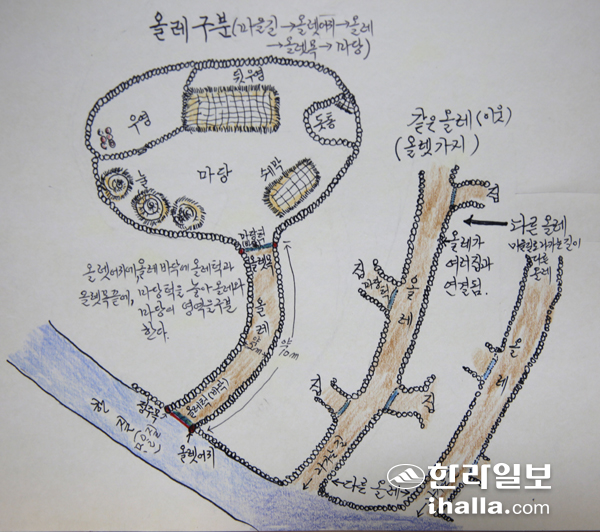 올레구분(마을길→올렛어귀→올레
→올렛목→마당)
뒷우영
우영
돗통
눌
마당
쇠막
같은 올레(이웃)
(올렛가지)
집
다른 올레
다른
올레
올레가
여러집과
연결됨.
올렛목
올렛어귀에, 올레 바닥에 올레턱과
올렛목 끝에, 마당턱을 놓아 올레와
마당의 영역을 구분
한다.
올레
약
10m
집
마당턱
올레
올레
집
집
정주목
올레턱(바닥)
올렛어귀
큰
길
다른 올레
한라일보
ihalla.com